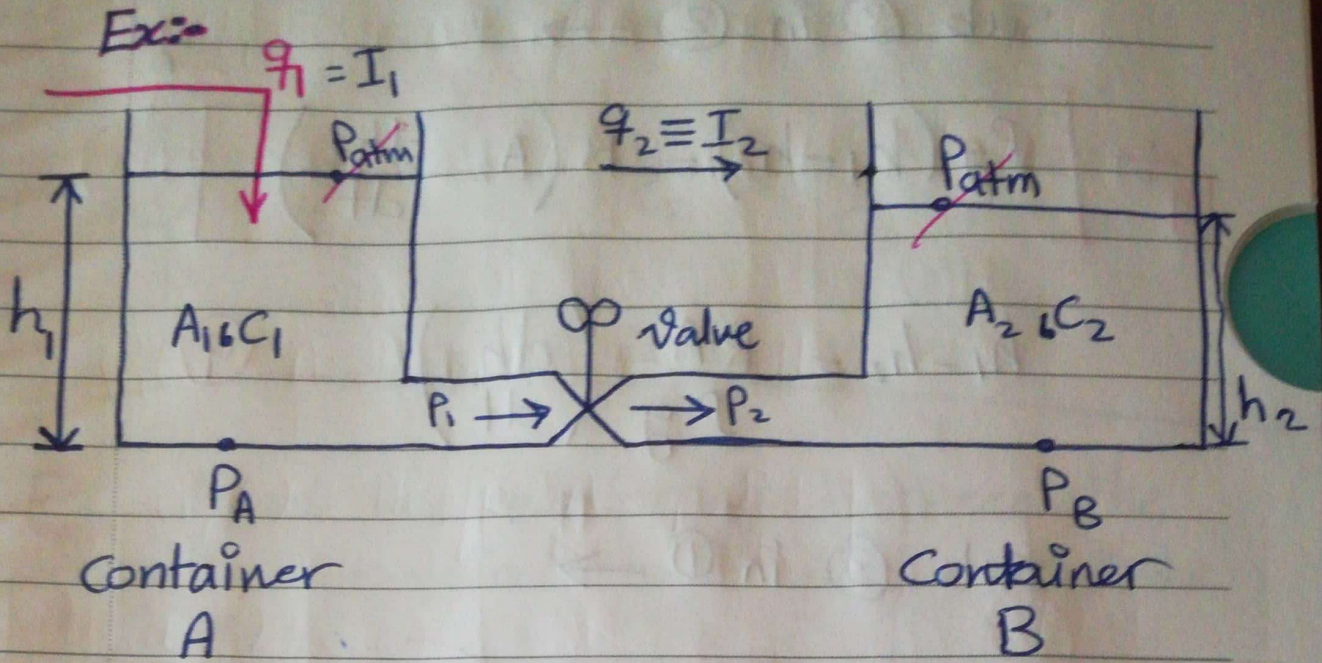 Ex:-
q₁ = I₁
Patm
q₂ ≡ I₂
Patm
h₁
A₁, C₁
Value
A₂, C₂
P₁ → → P₂
h₂
P_A
P_B
Container
A
Container
B